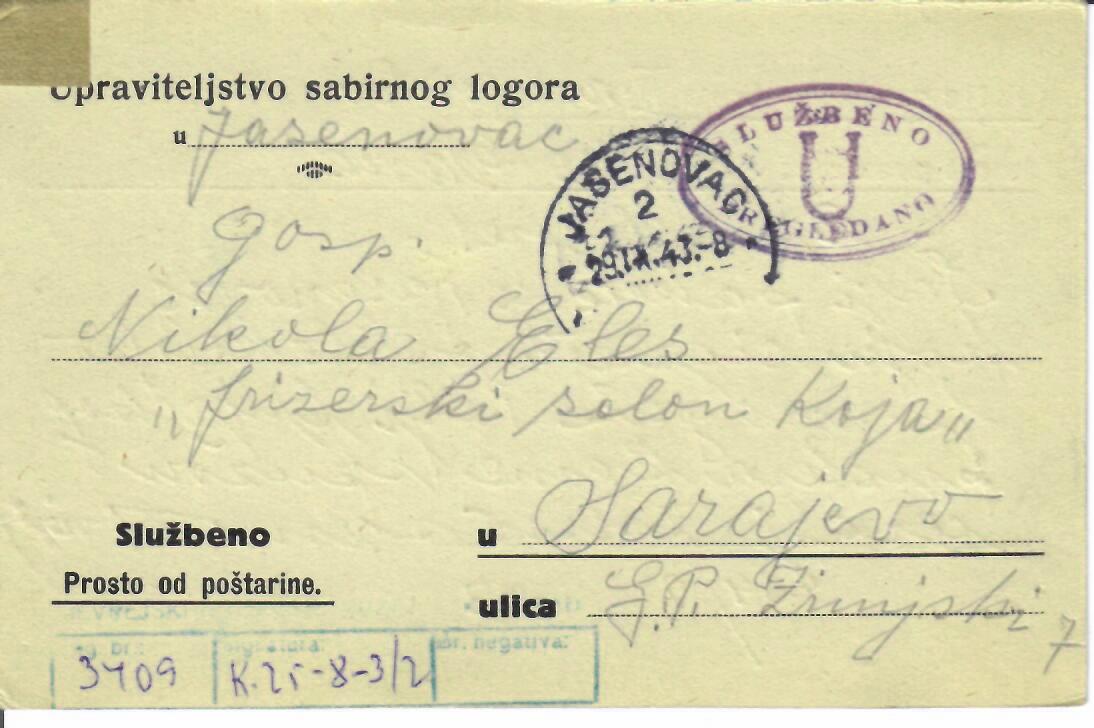 Upraviteljstvo sabirnog logora
u Jasenovac
SLUŽBENO
U
PREGLEDANO
JASENOVAC
2
29.IX.43.-8
Gosp.
Nikola Eles
"frizerski solon Koja"
Službeno
Prosto od poštarine.
u Sarajevo
ulica G.P. Zrinjski 7
signatura:
br. negativa:
3409
K.25-8-3/2